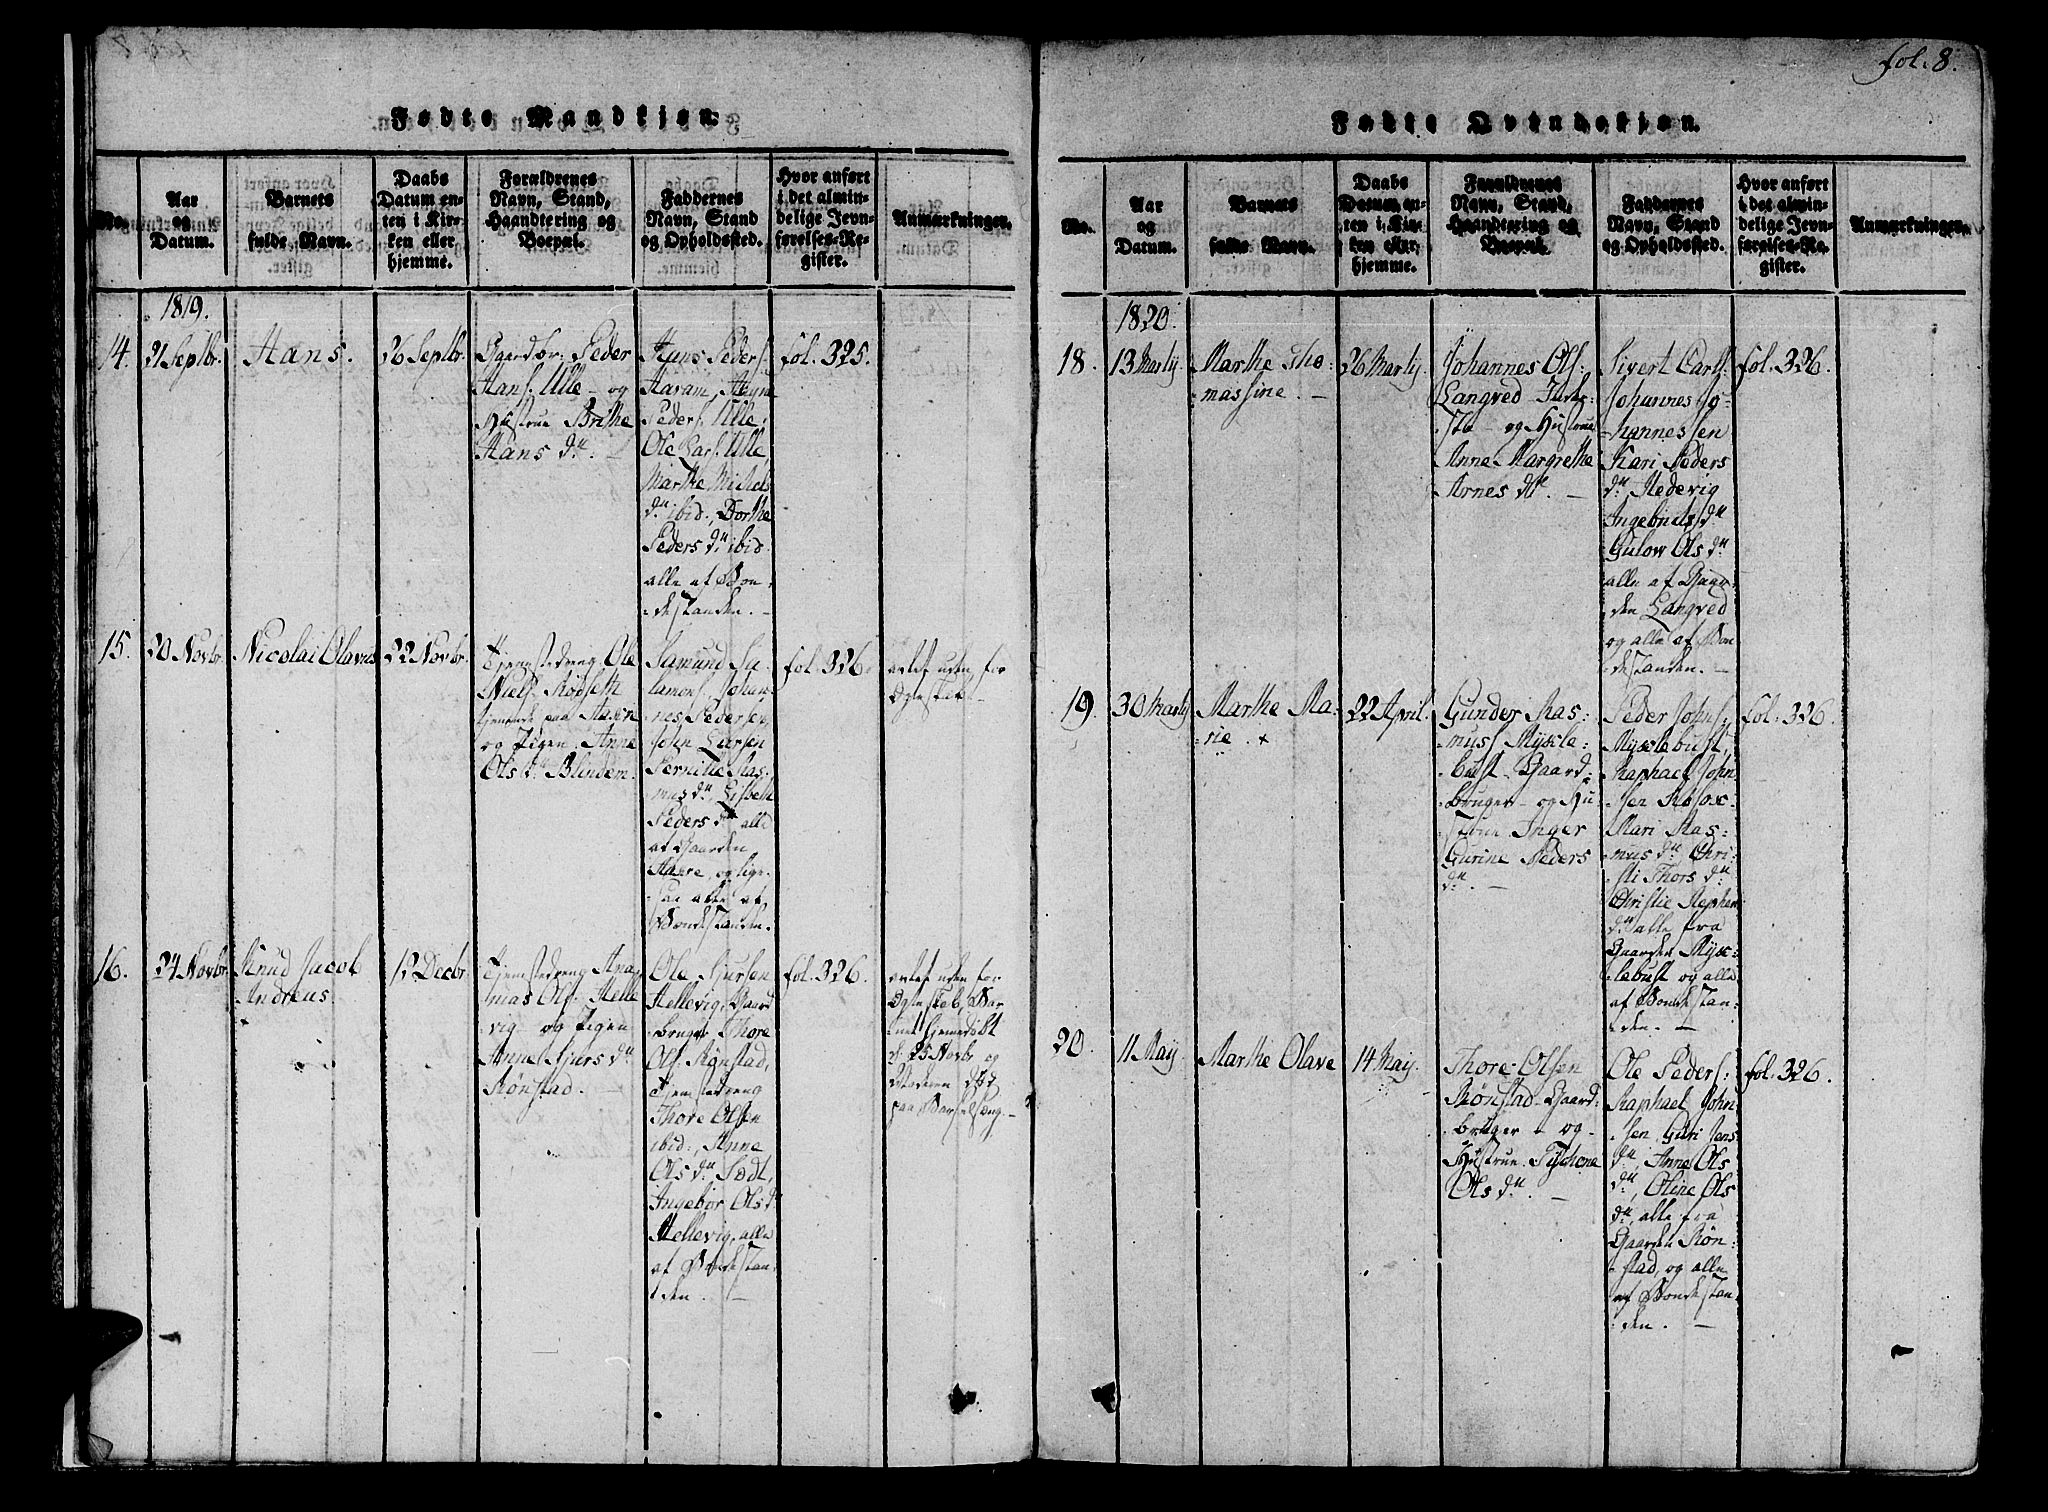 fol. 8.
Fødte Mandkjøn.
No.
Aar
og
Datum.
Barnets
fulde Navn.
Daabs
Datum en-
ten i Kir-
ken eller
hjemme.
Forældrenes
Navn, Stand,
Haandtering og
Boepæl.
Faddernes
Navn, Stand
og Opholdssted.
Hvor anført
i det almin-
delige Jevn-
førelses-Re-
gister.
Anmærkninger.
1819.
14.
21 Septbr.
Hans.
26 Septbr.
Gaardbr. Peder
Hans. Ulle - og
Hustrue Brithe
Hans dtr. -
Hans Peders:
Haram,
Peders. Ulle,
Ole Lars. Ulle
Marthe Michels
dtr ibid:, Dorthe
Peders dtr ibid.
alle af Bon-
destanden. -
fol. 325.
15.
20 Novbr.
Nicolai Olavus
22 Novbr.
Tjenestedreng Ole
Niels. Rødseth
tjenende paa
og Pigen Anne
Ols dtr Blindem.
Samund Sa-
lamons., Johan-
nes Pedersen,
John Larsen
Pernille Ras-
mus dtr, Lisbeth
Peders dtr alle
af Gaarden
og lige-
saa alle af
Bondestanden.
fol. 326.
ægteskab -
16.
24 Novbr.
Knud Jacob
Andreas.
12 Decbr.
Tjenestedreng
Ols. Helle
vig - og Pigen
Anne Sjurs dtr
Rønstad. -
Ole Sjursen
Hellevig, Gaard
bruger, Thore
Ols. Rønstad,
Tjenestedreng
Thore Olsen
ibid:, Anne
Ols dtr
Ingebor Ols dtr
Hellevig, alle
af Bondestan-
den. -
fol. 326.
Ægteskab, Bar-
net hjemmedøbt
d. 25 Novbr og
Moderen død
paa Barselseng. -
Fødte Qvindekjøn.
No.
Aar
og
Datum.
Barnets
fulde Navn.
Daabs
Datum en-
ten i Kir-
ken eller
hjemme.
Forældrenes
Navn, Stand,
Haandtering og
Boepæl.
Faddernes
Navn, Stand
og Opholdssted.
Hvor anført
i det almin-
delige Jevn-
førelses-Re-
gister.
Anmærkninger.
1820.
18.
13 Martij
Marthe Tho-
massine. -
26 Martij
Johannes Ols:
Langved
og Hustrue
Anne Margrethe
Arnes dtr. -
Sivert Carls.
Johannes Jo-
hannessen
Kari Peders
dtr, Hedevig
Ingebrigts dtr
Gulow Ols dtr
alle af Gaar-
den Langved
og alle af Bon-
destanden. -
fol. 326.
19.
30 Martij
Marthe Ma-
rie. +
22 April.
Gunder Ras-
mus. Myxle-
bust - Gaard-
bruger - og Hu-
strue Inger
Gurine Peders
dtr. -
Peder Johns.
Myxlebust,
Raphael John-
sen
Mari Ras-
mus dtr Chri-
sti Thors dtr
Christie
dtr alle fra
Gaarden Myx-
lebust og alle
af Bondestan-
den. -
fol. 326.
20.
11 Maij.
Marthe Olave
14 Maij.
Thore Olsen
Rønstad Gaard-
bruger - og
Hustrue
Ols dtr. -
Ole Peders:
Raphael John-
sen, Guri Jens
dtr, Anne Ols
dtr, Oline Ols
dtr, alle fra
Gaarden Røn-
stad, og alle
af Bondestan-
den. -
fol. 326.